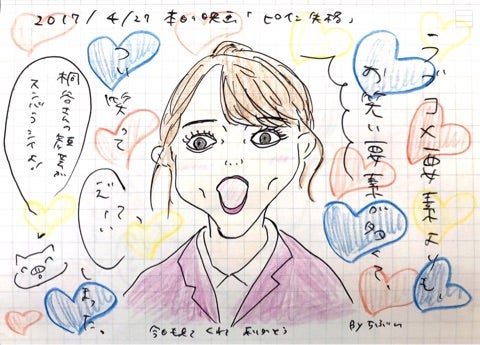 2017/4/27 本日の映画「ヒロイン失格」
ラブコメ要素よりも、
お笑い要素が多くて、
つい笑って
しまった。
桐谷さんの顔芸が
スンバラシイよ!
でぇーい
今日も見てくれてありがとう
By